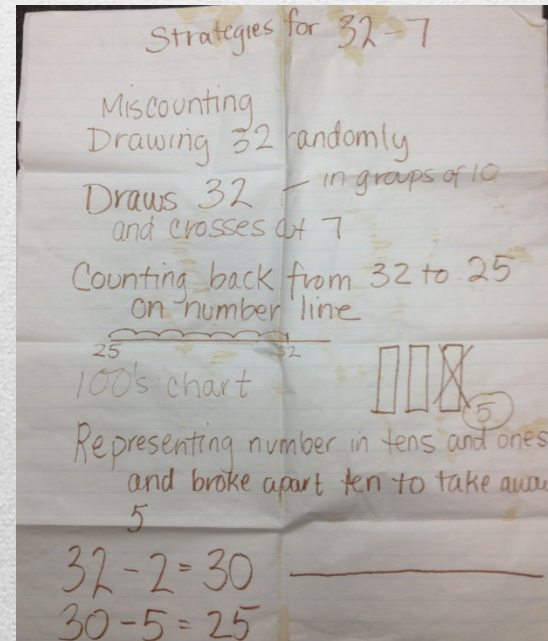 Strategies for 32-7
Miscounting
Drawing 32 randomly
Draws 32 - in groups of 10
and crosses out 7
Counting back from 32 to 25
on number line
25 32
100's chart
5
Representing number in tens and ones
and broke apart ten to take away
5
32-2=30
30-5=25